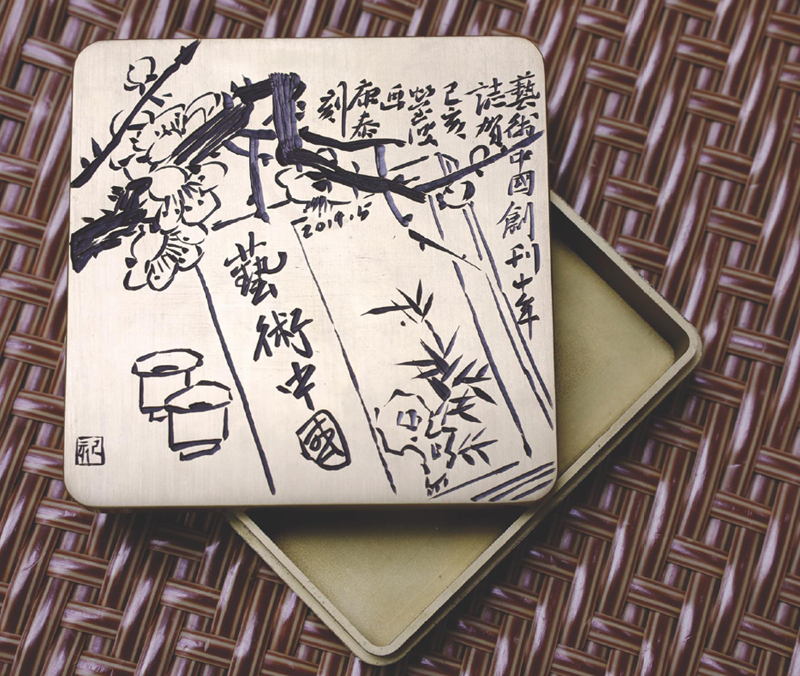 藝術中國創刊十年
誌賀
己亥
画
康泰
刻
2019.5
藝術中國